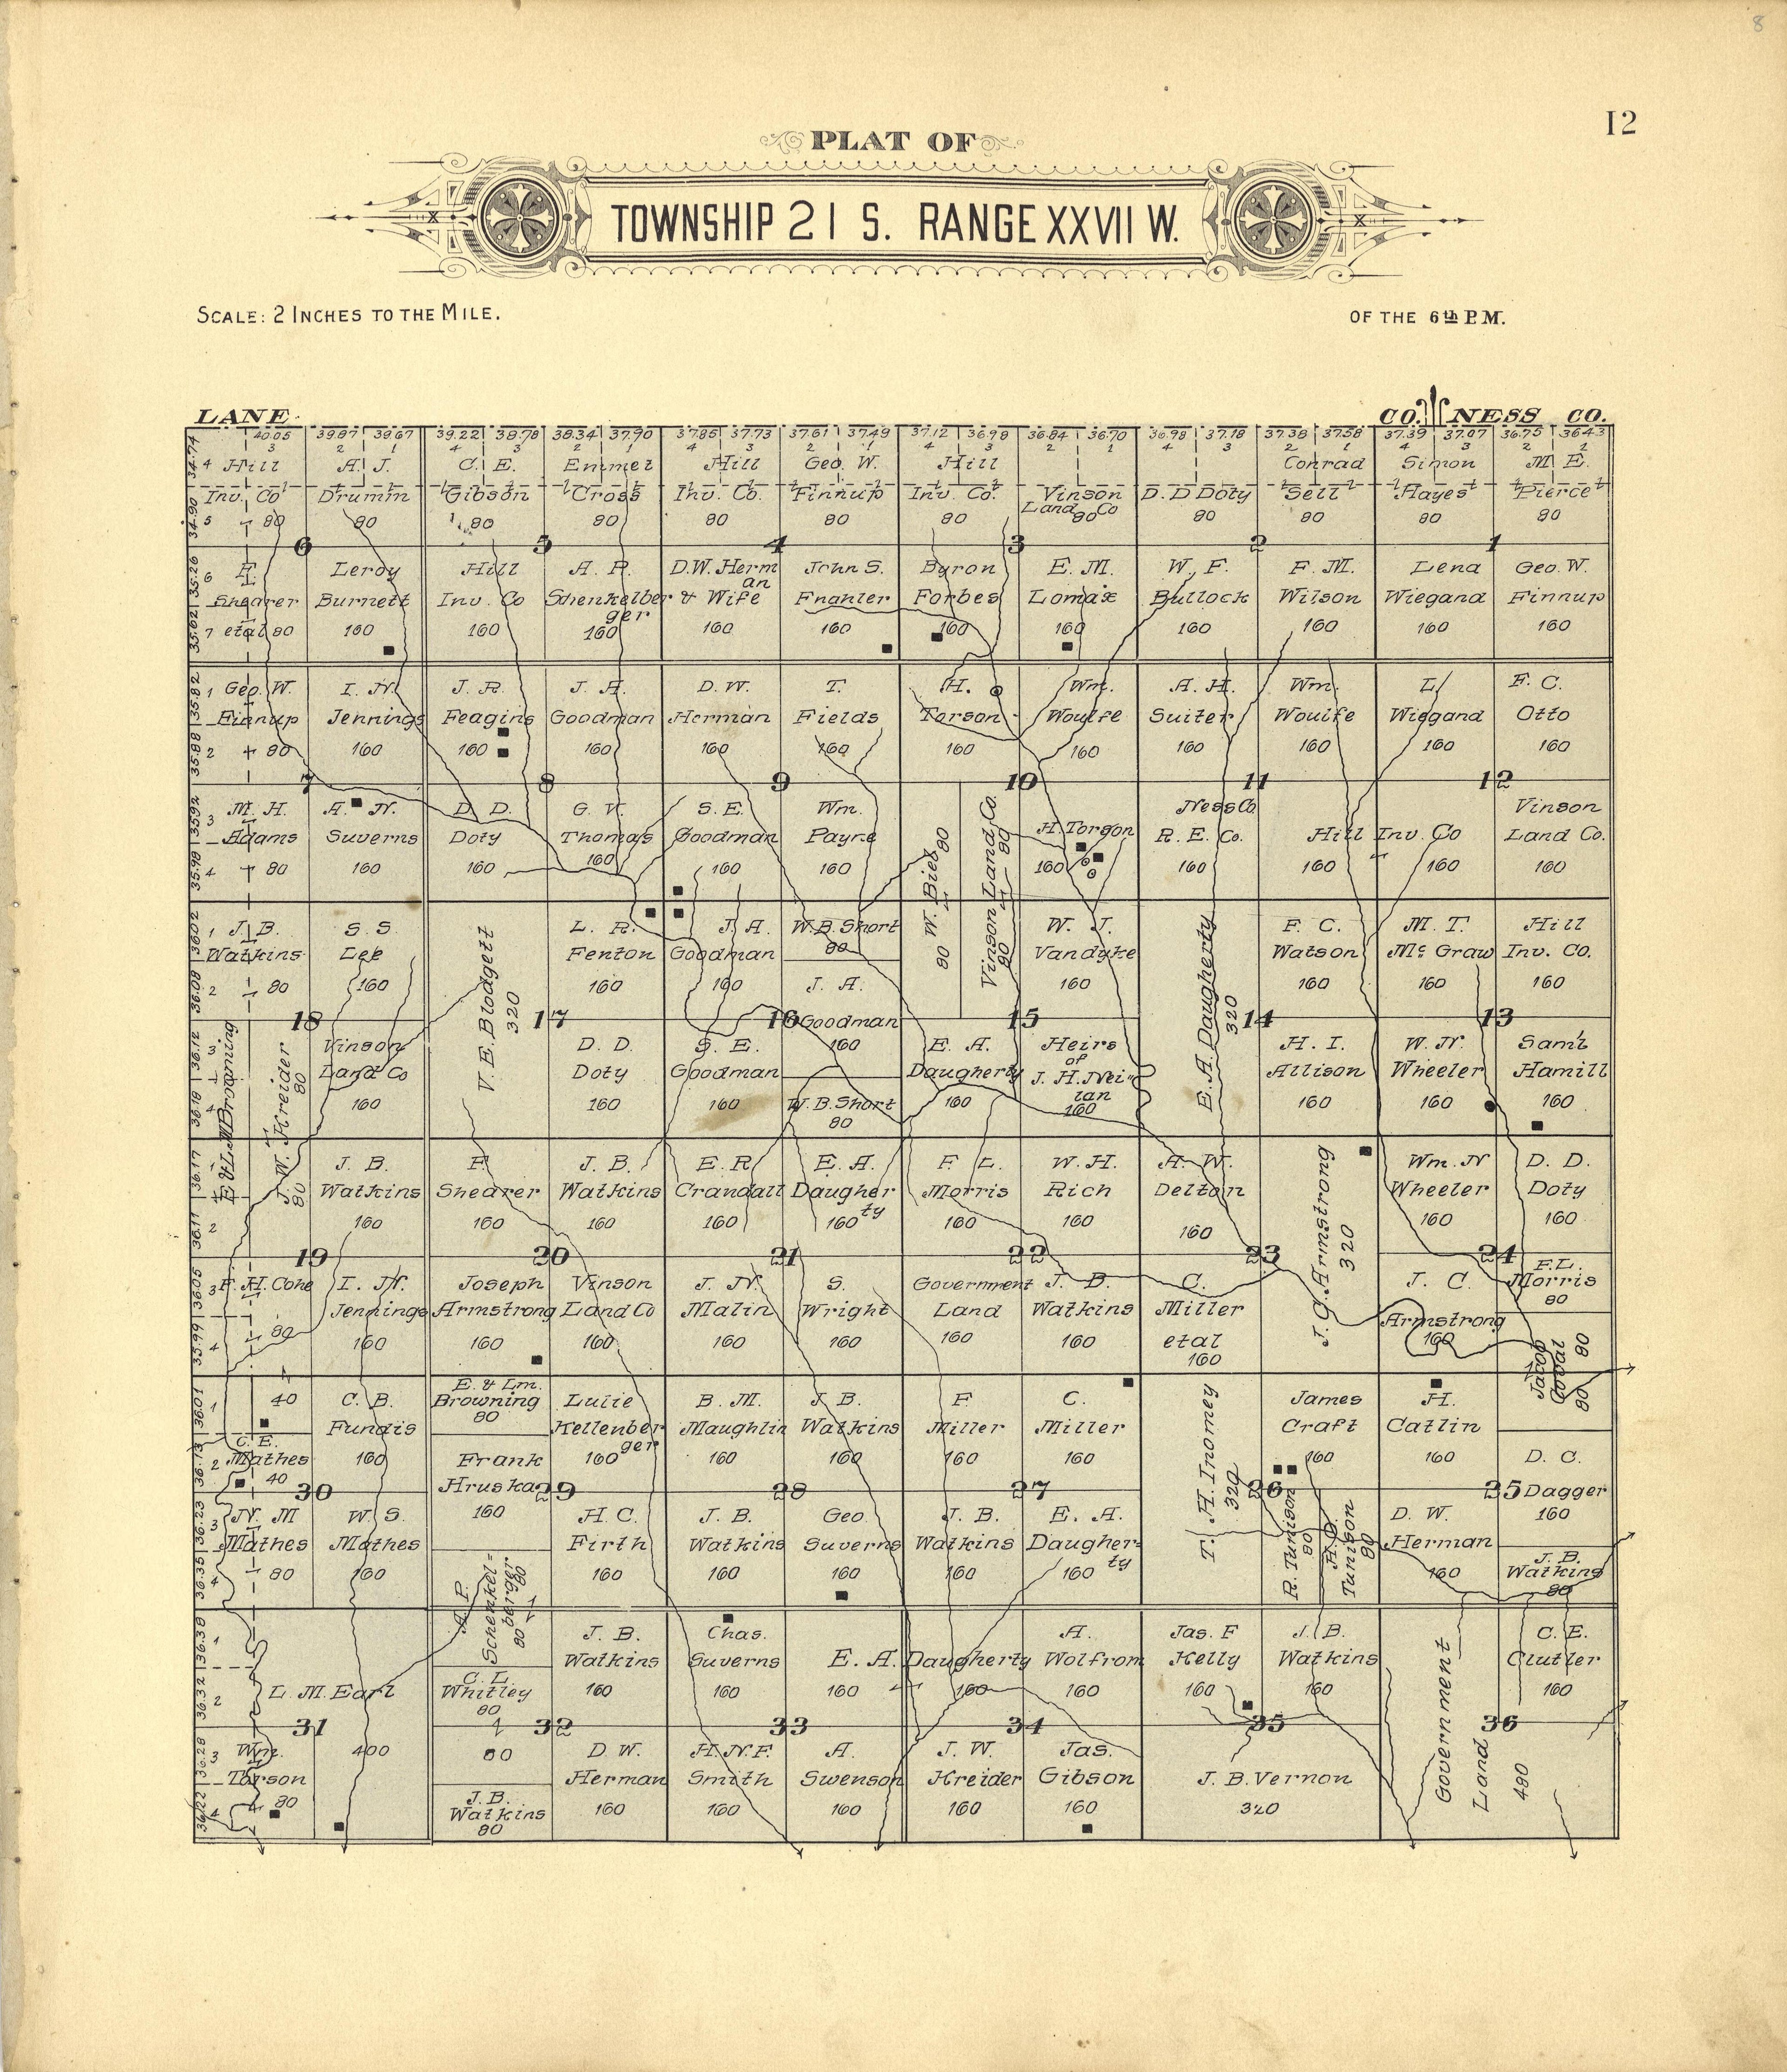 8
12
PLAT OF
TOWNSHIP 21 S. RANGE XXVII W.
SCALE: 2 INCHES TO THE MILE.
OF THE 6th P.M.
LANE
CO. NESS CO.
40.05 39.87 39.67 39.22 38.78 38.34 37.90 37.85 37.73 37.61 37.49 37.12 36.98 36.84 36.70 36.98 37.18 37.38 37.58 37.39 37.07 36.75 36.43
Hill A. J. C. E. Emmel Hill Geo. W. Hill Conrad Simon M. E.
Inv. Co Drumm Gibson Cross Inv. Co. Finnup Inv. Co. Vinson D. D Doty Sell Hayes Pierce
Land Co
80 80 80 80 80 80 80 80 80 80 80 80
6 5 4 3 2 1
F. Leroy Hill A. P. D.W. Herm John S. Byron E. M. W. F. F. M. Lena Geo. W.
an
Shearer Burnett Inv. Co Schenkelber & Wife Fnahler Forbes Lomax Bullock Wilson Wiegand Finnup
ger
etal 80 160 160 160 160 160 160 160 160 160 160 160
Geo. W. I. N. J. R. J. A. D. W. T. H. Wm. A. H. Wm. L. F. C.
Finnup Jennings Feagins Goodman Herman Fields Torson Woulfe Suiter Woulfe Wiegand Otto
80 160 160 160 160 160 160 160 160 160 160 160
7 8 9 10 11 12
M. H. A. N. D. D. G. W. S. E. Wm. Ness Co. Vinson
Adams Suverns Doty Thomas Goodman Payne W. Biel 80 Vinson Land Co. 80 H. Torson R. E. Co. Hill Inv. Co Land Co.
80 160 160 160 160 160 160 160 160 160 160
J. B. S. S. V. E. Blodgett L. R. J. A. W. B. Short W. J. E. A. Daugherty F. C. M. T. Hill
80
Watkins Lee 320 Fenton Goodman Vandyke 320 Watson Mc Graw Inv. Co.
J. A.
80 160 160 160 80 80 160 160 160 160
18 17 16 Goodman 15 14 13
160
E & L. M Browning J. W. Kreider Vinson D. D. S. E. E. A. Heirs H. I. W. N. Saml
80 of
Land Co Doty Goodman Daugherty J. H. Nei- Allison Wheeler Hamill
lan
160 160 160 W. B. Short 160 160 160 160 160
80
J. B. F. J. B. E. R E. A. F. L. W. H. A. W. J. G. Armstrong Wm. N D. D.
80 Watkins Shearer Watkins Crandall Daugher Morris Rich Delton 320 Wheeler Doty
ty
160 160 160 160 160 160 160 160 160 160
19 20 21 22 23 24
F. H. Cone I. N. Joseph Vinson J. N. S. Government J. B. C. J. C. F. L.
Jennings Armstrong Land Co Malin Wright Land Watkins Miller Armstrong Morris
80
80 160 160 160 160 160 160 160 etal 160 Jacob
160 80 80
40 C. B. E. & Lm. Lulie B. M. J. B. F. C. T. H. Inomey James H.
Browning
Fundis 80 Kellenber Maughlin Watkins Miller Miller 320 Craft Catlin
ger
C. E.
Mathes 160 Frank 160 160 160 160 160 160 160 D. C.
40
30 Hruska 29 28 27 26 25 Dagger
160 160
N. M W. S. H. C. J. B. Geo J. B. E. A. R. Tunison Tunison D. W.
Mathes Mathes Firth Watkins Suverns Watkins Daugher- 80 80 Herman
ty
80 160 160 160 160 160 160 160 J. B.
Watkins
80
A. P. Schenkel=
berger 80
80
J. B. Chas. A. Jas. F J. B. Government C. E.
L. M. Earl Watkins Suverns E. A. Daugherty Wolfrom Kelly Watkins Land Clutler
C. L.
Whitley 160 160 160 160 160 160 160 480 160
80
31 32 33 34 35 36
Wm. 400 80 D W. H. N. F. A. J. W. Jas.
Torson Herman Smith Swenson Kreider Gibson J. B. Vernon
80 J. B. 160 160 160 160 160 320
Watkins
80